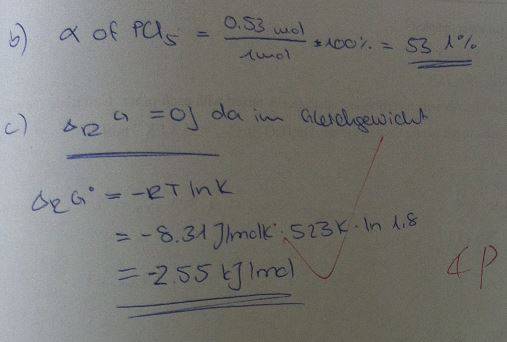 b) α of PCl₅ = 0.53 mol / 1mol * 100% = 53 %
c) ΔRG = 0J da im Gleichgewicht
ΔRG° = -RT ln K
= -8.31 J/molK · 523K · ln 1,8
= -2.55 kJ/mol
4P